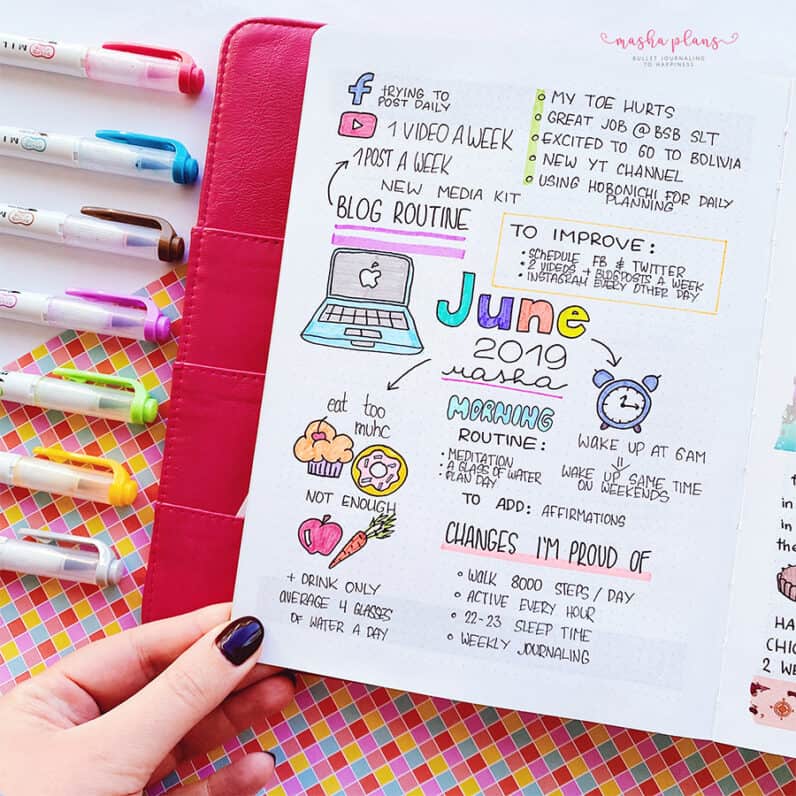 masha plans
BULLET JOURNALING
TO HAPPINESS
TRYING TO
POST DAILY
1 VIDEO A WEEK
1 POST A WEEK
NEW MEDIA KIT
BLOG ROUTINE
MY TOE HURTS
GREAT JOB @ BSB SLT
EXCITED TO GO TO BOLIVIA
NEW YT CHANNEL
USING HOBONICHI FOR DAILY
PLANNING
TO IMPROVE:
• SCHEDULE FB & TWITTER
• 2 VIDEOS + BLOGPOSTS A WEEK
• INSTAGRAM EVERY OTHER DAY
June
2019
masha
eat too
muhc
NOT ENOUGH
+ DRINK ONLY
AVERAGE 4 GLASSES
OF WATER A DAY
MORNING
ROUTINE:
• MEDITATION
• A GLASS OF WATER
• PLAN DAY
TO ADD: AFFIRMATIONS
WAKE UP AT 6AM
WAKE UP SAME TIME
ON WEEKENDS
CHANGES I'M PROUD OF
• WALK 8000 STEPS / DAY
• ACTIVE EVERY HOUR
• 22-23 SLEEP TIME
• WEEKLY JOURNALING
in
in
the
HA
CHIC
2 WE